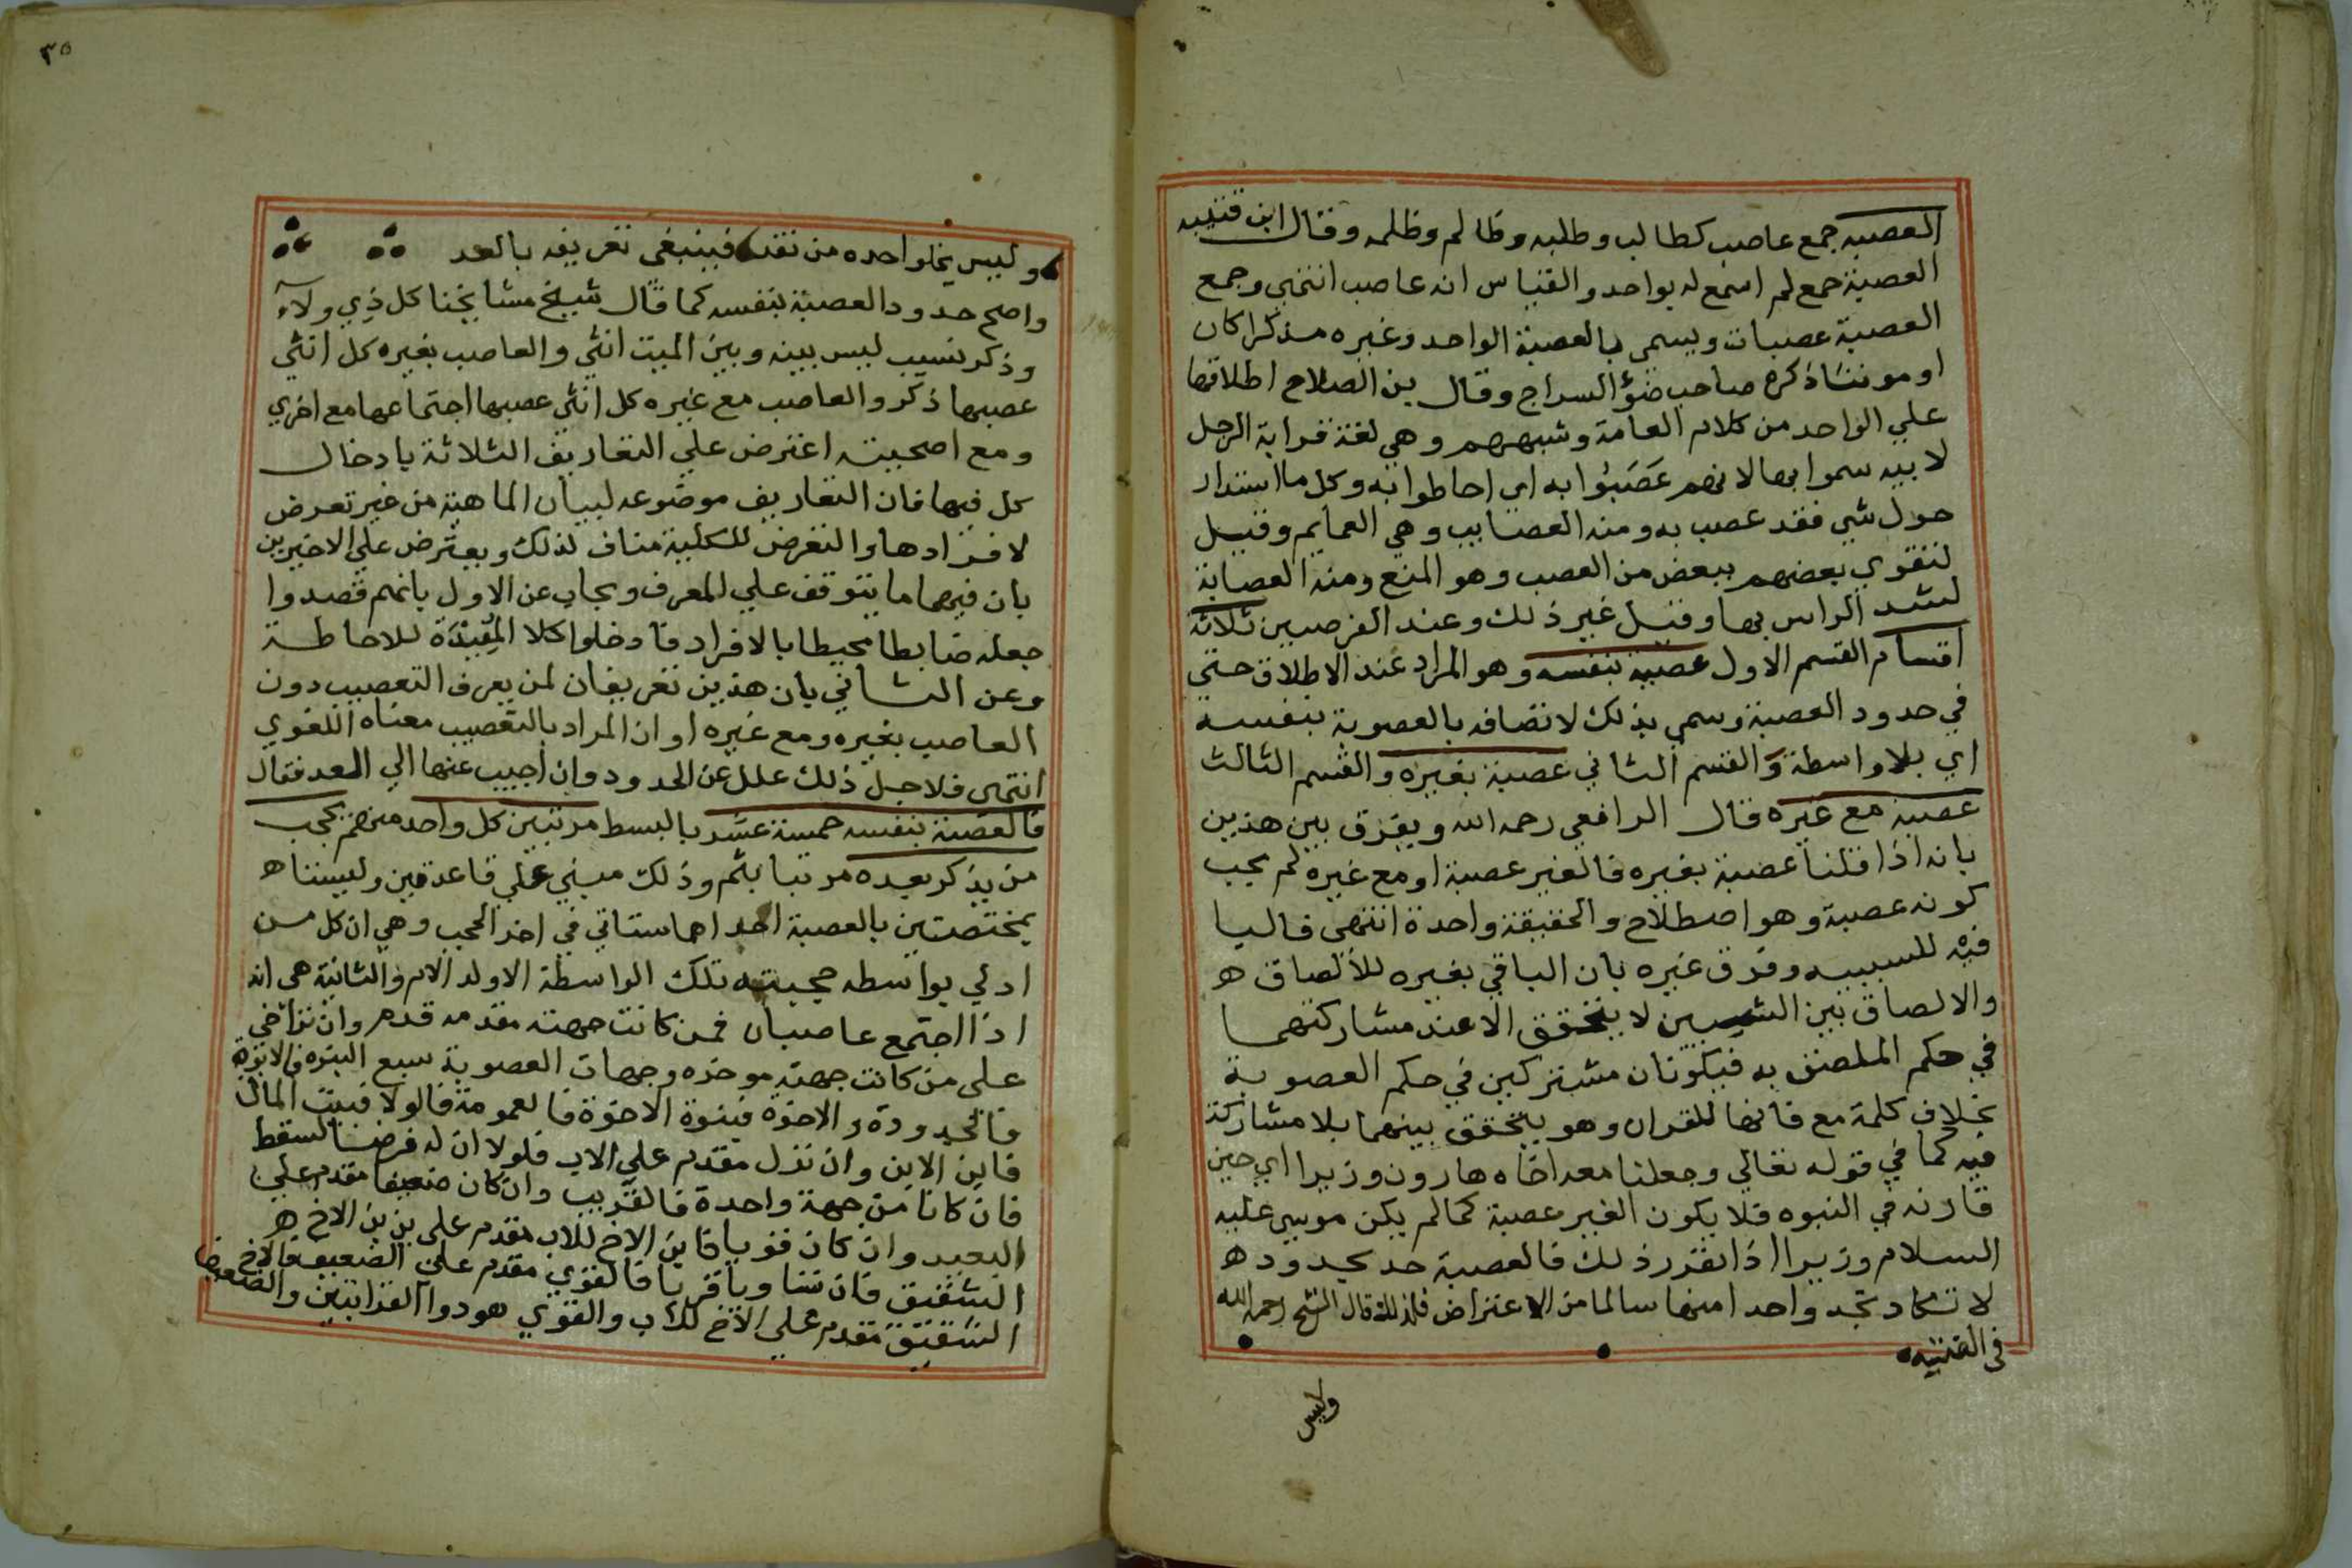 العصبه جمع عاصب كطالب وطلبه وظالم وظلمه وقال ابن قتيبه
العصبة جمع لم اسمع له بواحد والقياس انه عاصب انتهي وجمع
العصبة عصبات ويسمى بالعصبة الواحد وغيره مذكرا كان
او مونثا ذكره صاحب ضوٌ السراج وقال بن الصلاح اطلاقها
علي الواحد من كلام العامة وشبههم وهي لغة قرابة الرجل
لابيه سموا بها لانهم عَصَبُوا به اي احاطوا به وكل ما استدار
حول شي فقد عصب به ومنه العصايب وهي العمايم وقيل
لتقوي بعضهم ببعض من العصب وهو المنع ومنه العصابة
لشد الراس بها وقيل غير ذلك وعند الفرضيين ثلاثة
اقسام القسم الاول عصبة بنفسه وهو المراد عند الاطلاق حتي
في حدود العصبة وسمي بذلك لاتصافه بالعصوبة بنفسه
اي بلا واسطة والقسم الثاني عصبة بغيره والقسم الثالث
عصبة مع غيره قال الرافعي رحمه الله ويفرق بين هذين
بانه اذا قلنا عصبة بغيره فالغير عصبة او مع غيره لم يجب
كونه عصبة وهو اصطلاح والحقيقة واحدة انتهى فالبا
فيه للسببيه وفرق غيره بان الباقي بغيره للألصاق ه
والالصاق بين الشيين لا يتحقق الا عند مشاركتهما
في حكم الملصق به فيكونان مشتركين في حكم العصوبة
بخلاف كلمة مع فانها للقران وهو يتحقق بينهما بلا مشاركة
فيه كما في قوله تعالي وجعلنا معه اخاه هارون وزيرا اي حين
قارنه في النبوه فلا يكون الغير عصبة كما لم يكن موسي عليه
السلام وزيرا اذا تقرر ذلك فالعصبة حد بحدود ه
لا تكاد تجد واحدا منها سالما من الاعتراض فلذلك قال الشيخ رحمه الله
في القنيه
وليس
٣٥
وليس يخلوا حده من نقد فينبغي تعريفه بالعد
واصح حدود العصبة بنفسه كما قال شيخ مشايخنا كل ذي ولآء
وذكر نسيب ليس بينه وبين الميت انثي والعاصب بغيره كل انثي
عصبها ذكر والعاصب مع غيره كل انثي عصبها اجتماعها مع اخري
ومع اصحيته اعترض علي التعاريف الثلاثة بادخال
كل فيها فان التعاريف موضوعه لبيان الماهية من غير تعرض
لافرادها والتعرض للكلية مناف لذلك ويعترض علي الاخيرين
بان فيهما ما يتوقف علي المعرف ويجاب عن الاول بانهم قصدوا
جعله ضابطا محيطا بالافراد فادخلوا كلا المُفِيْدَة للاحاطة
وعن الثاني بان هذين تعريفان لمن يعرف التعصيب دون
العاصب بغيره ومع غيره او ان المراد بالتعصيب معناه اللغوي
انتهى فلاجل ذلك علل عن الحدود وان اجيب عنها الي العد فقال
فالعصبة بنفسه خمسة عشر بالبسط مرتبين كل واحد منهم يحجب
من يذكر بعده مرتبا بثم وذلك مبني علي قاعدتين وليستا ه
بمختصتين بالعصبة احداهما ستاتي في اخر الحجب وهي ان كل من
ادلي بواسطه حجبته تلك الواسطة الا ولد الام والثانية هي انه
اذا اجتمع عاصبان فمن كانت جهته مقدمه قدم وان تراخي
على من كانت جهته موخره وجهات العصوبة سبع البنوه فالابوة
فالجدودة والاخوة فبنوة الاخوة فالعمومة فالولا فبيت المال
فابن الابن وان نزل مقدم علي الاب فلولا ان له فرضا لسقط
فان كانا من جهة واحدة فالقريب وان كان ضعيفا مقدم علي
البعيد وان كان قويا فابن الاخ للاب مقدم علي بن بن الاخ ه
الشقيق فان تساويا قربا فالقوي مقدم علي الضعيف فالاخ ايضا
الشقيق مقدم علي الاخ للاب والقوي هو ذوا القرابتين والضعيف